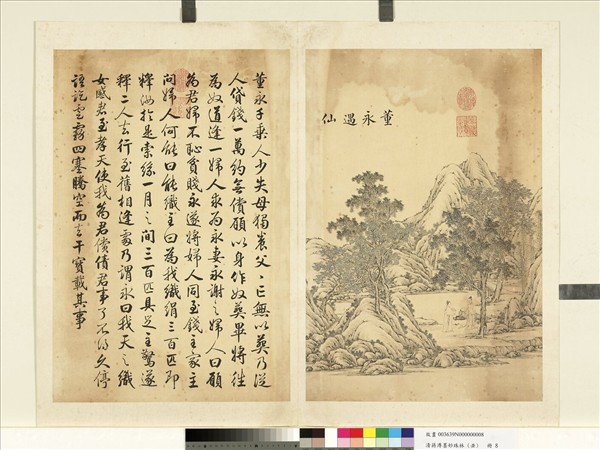 董永遇仙
董永子乘人少失母獨養父、亡無以葬乃從
人貸錢一萬約無償願以身作奴葬畢將往
為奴道逢一婦人求為永妻永謝之婦人曰願
為君婦不恥貧賤永遂將婦人同至錢主家主
問婦人何能曰能織主曰為我織絹三百匹即
釋汝於是索絲一月之間三百匹具足主驚遂
釋二人去行至舊相逢處乃謂永曰我天之織
女感君至孝天使我為君償債君事了不得久停
語訖雲霧四塞騰空而去干寶載其事
故畫 003659N000000008